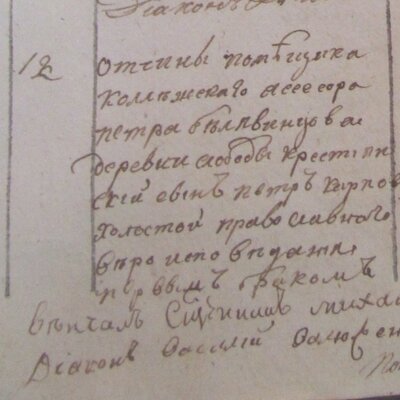 Диаконъ
12 отчины помѣщика
коллѣжскаго асесора
петра бѣлавинцова
деревни слободы крестиян
скій сынъ петръ карпов
холостой православнаго
вѣро исповѣдания
первымъ бракомъ
вѣнчалъ Сщенникъ михаи
Діаконъ Василій